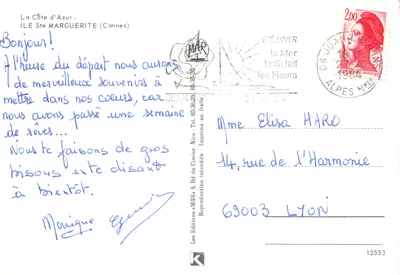 La Côte d'Azur
ILE Ste MARGUERITE (Cannes)
Bonjour!
A l'heure du départ nous aurons
de merveilleux souvenirs à
mettre dans nos cœurs, car
nous avons passé une semaine
de rêves...
Nous te faisons de gros
bisous en te disant
à bientôt.
Monique
la Mer
le Soleil
les Fleurs
2,00
06 JUAN
ALPES Mmes
Mme Elisa HARO
14, rue de l'Harmonie
69003 LYON
Les Editions «MAR»
Reproduction interdite Imprimé en Italie
K
12553